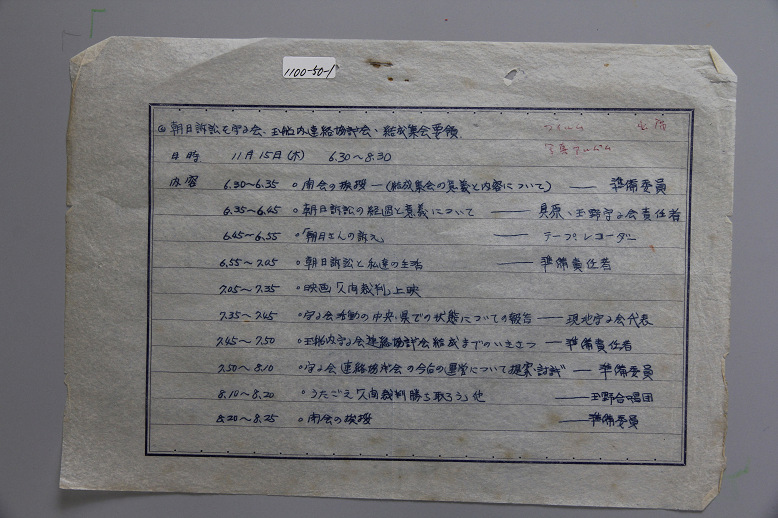 1100-50-1
◎朝日訴訟を守る会、玉船内連絡協ギ会・結成集会要領
フィルム
写真アルバム
日時 11月15日(木) 6.30〜8.30
内容 6.30〜6.35 ○開会の挨拶―(結成集会の意義と内容について) ― 準備委員
6.35〜6.45 ○朝日訴訟の経過と意義について ― 貝原、玉野守る会責任者
6.45〜6.55 ○「朝日さんの訴え」 ― テープレコーダー
6.55〜7.05 ○朝日訴訟と私達の生活 ― 準備責任者
7.05〜7.35 ○映画「人間裁判」上映
7.35〜7.45 ○守る会活動の中央、県での状態についての報告 ― 現地守る会代表
7.45〜7.50 ○玉船内守る会連絡協ギ会結成までのいきさつ ― 準備責任者
7.50〜8.10 ○守る会連絡協ギ会の今后の運営について提案討議 ― 準備委員
8.10〜8.20 ○うたごえ「人間裁判勝ち取ろう」他 ― 玉野合唱団
8.20〜8.25 ○閉会の挨拶 ― 準備委員